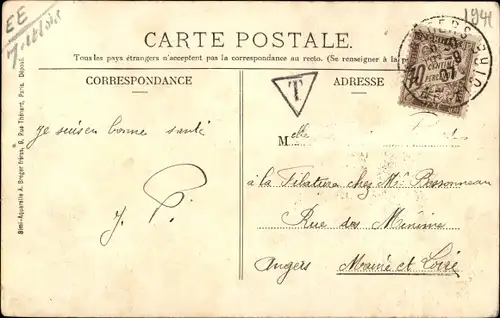 EE
1941
CARTE POSTALE.
Tous les pays étrangers n'acceptent pas la correspondance au recto. (Se renseigner à la
CORRESPONDANCE
ADRESSE
T
10
CENTIMES
07
Simi-Aquarelle A. Breger Frères, 9, Rue Thénard, Paris. Déposé.
je suis en bonne santé
J. P.
Melle
à la Filature chez Mr Bessonneau
Rue des Minimes
Angers Maine et Loire